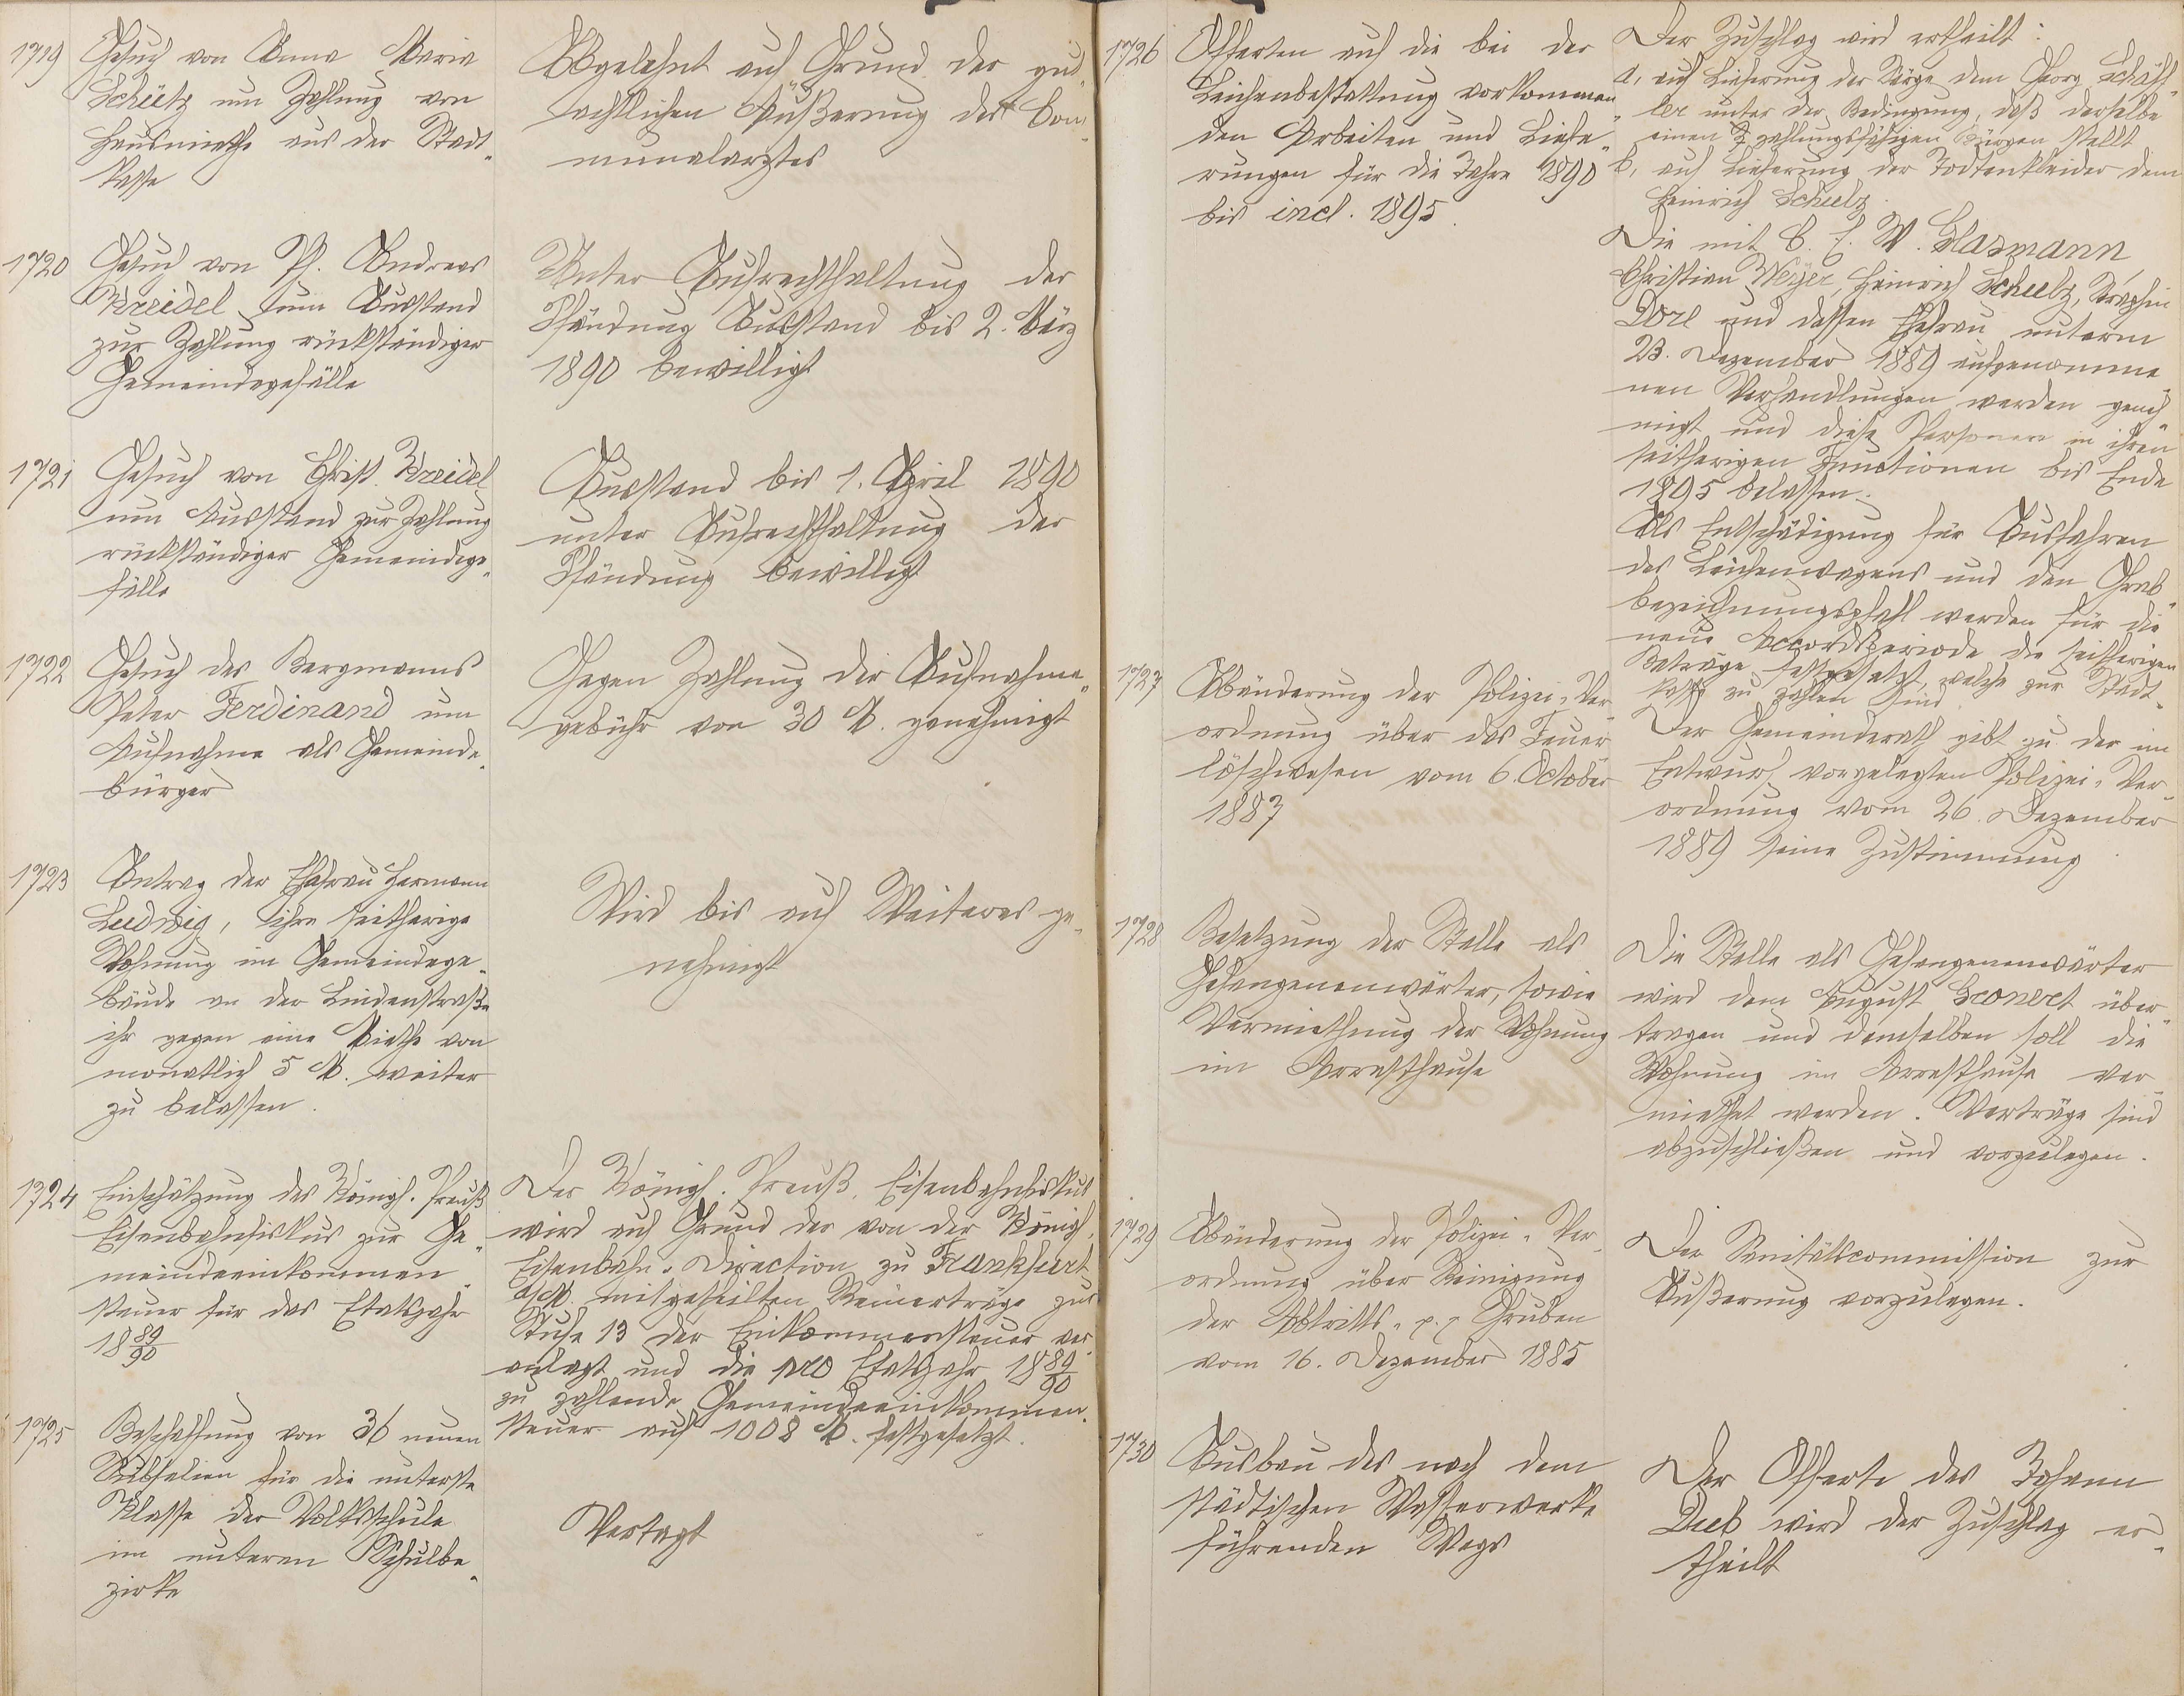 1719
Gesuch von Anna Maria
Schütz um Zahlung von
Hausmiethe aus der Stadt-
kasse
Abgelehnt auf Grund der gut-
achtlichen Äußerung des Com-
munalarztes
1720
Gesuch von Ph. Andreas
Kreidel um Ausstand
zur Zahlung rückständiger
Gemeindegefälle
Unter Aufrechthaltung der
Pfändung Ausstand bis 2. März
1890 bewilligt
1721
Gesuch von Christ. Kreidel
um Ausstand zur Zahlung
rückständiger Gemeindege-
fälle
Ausstand bis 1. April 1890
unter Aufrechthaltung der
Pfändung bewilligt
1722
Gesuch des Bergmanns
Peter Ferdinand um
Aufnahme als Gemeinde-
bürger
Gegen Zahlung der Aufnahme-
gebühr von 30 M. genehmigt
1723
Antrag der Ehefrau Hermann
Ludwig, ihre seitherige
Wohnung im Gemeindege-
bäude an der Lindenstraße
ihr gegen eine Miethe von
monatlich 5 M. weiter
zu belassen.
Wird bis auf Weiteres ge-
nehmigt
1724
Einschätzung des Königl. Preuß
Eisenbahnfiskus zur Ge-
meindeeinkommen-
steuer für das Etatsjahr
1889/90
Der Königl. Preuß. Eisenbahnfiskus
wird auf Grund der von der Königl.
Eisenbahn-Direction zu Frankfurt
a/M. mitgetheilten Reinerträge zur
Stufe 13 der Einkommensteuer ver-
anlagt und die pro Etatsjahr 1889/90
zu zahlende Gemeindeeinkommen-
steuer auf 1008 M. festgesetzt.
1725
Beschaffung von 36 neuen
Subselien für die unterste
Klasse der Volksschule
im unteren Schulbe-
zirke
Vertagt
1726
Offerten auf die bei der
Leichenbestattung vorkommen-
den Arbeiten und Liefe-
rungen für die Jahre 1890
bis incl. 1895.
Der Zuschlag wird ertheilt:
a, auf Lieferung der Särge dem Georg Schäff-
ler unter der Bedingung, daß derselbe
einen zahlungsfähigen Bürgen stellt
b, auf Lieferung der Todtenkleider dem
Heinrich Schulz.
Die mit C. E. W. Glasmann
Christian Weyer, Heinrich Schulz, Seraphin
Dorl und dessen Ehefrau unterm
23. Dezember 1889 aufgenomme-
nen Verhandlungen werden geneh-
migt und diese Personen in ihren
seitherigen Functionen bis Ende
1895 belassen.
Als Entschädigung für Ausfahren
des Leichenwagens und den Grab-
bezeichnungspfahl werden für die
neue Accordsperiode die seitherigen
Beträge festgesetzt, welche zur Stadt-
kasse zu zahlen sind.
1727
Abänderung der Polizei-Ver-
ordnung über das Feuer-
löschwesen vom 6. October
1887
Der Gemeinderath gibt zu der im
Entwurf vorgelegten Polizei-Ver-
ordnung vom 26. Dezember
1889 seine Zustimmung.
1728
Besetzung der Stelle als
Gefangenenwärter, sowie
Vermiethung der Wohnung
im Arresthause
Die Stelle als Gefangenenwärter
wird dem August Gronert über-
tragen und demselben soll die
Wohnung im Arresthause ver-
miethet werden. Verträge sind
abzuschließen und vorzulegen.
1729
Abänderung der Polizei-Ver-
ordnung über Reinigung
der Abtritts- p. p Gruben
vom 16. Dezember 1885
Der Sanitätscommission zur
Äußerung vorzulegen.
1730
Ausbau des nach dem
städtischen Wasserwerke
führenden Wegs
Der Offerte des Johann
Dub wird der Zuschlag er-
theilt